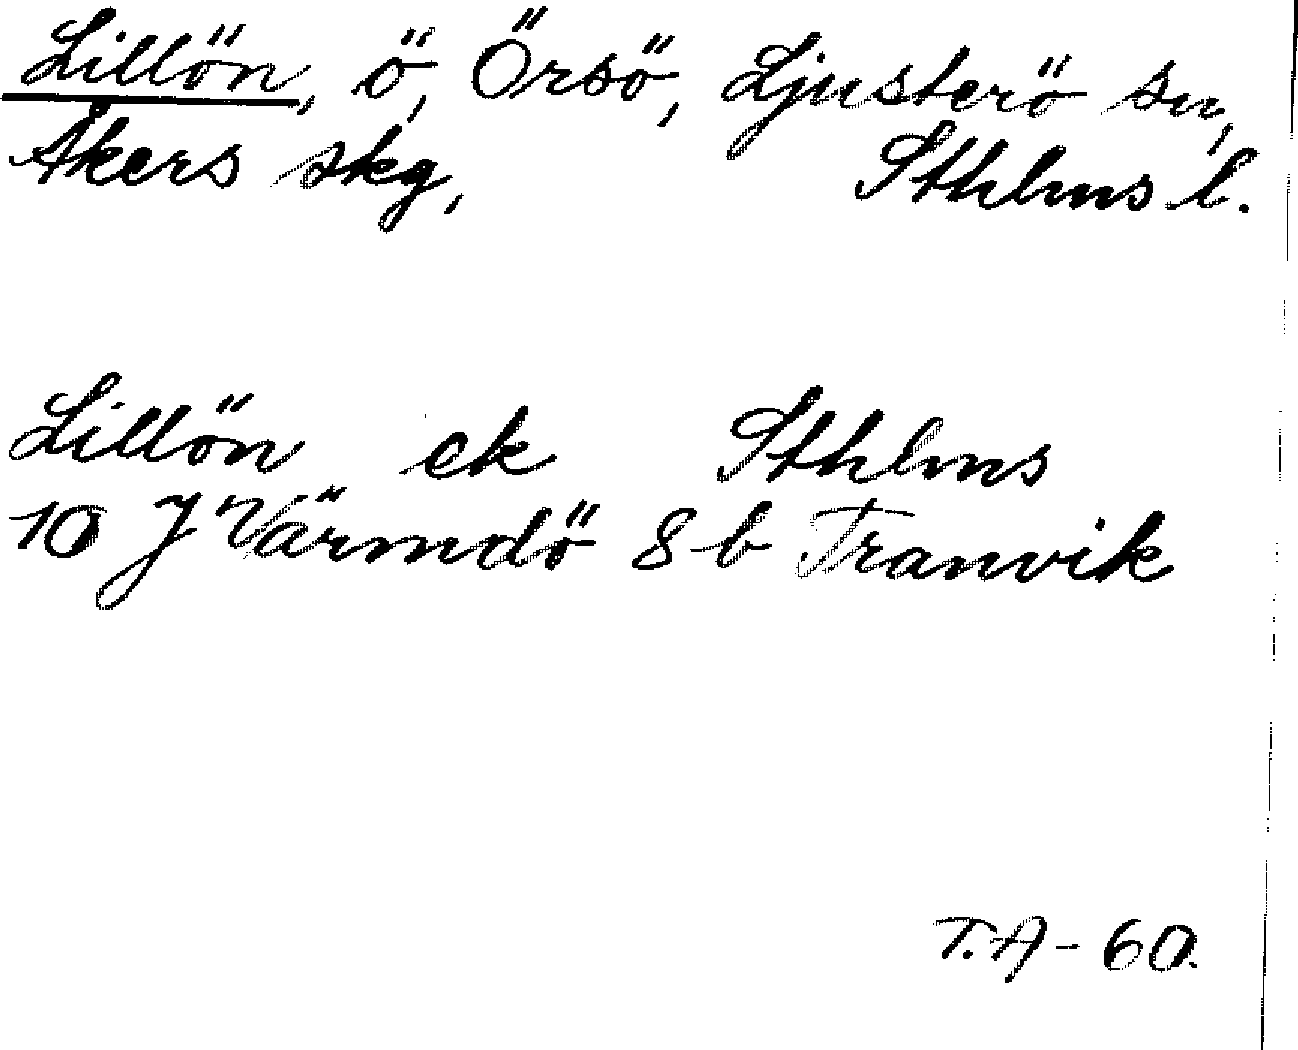 Lillön, ö, Örsö, Ljusterö sn,
Åkers skg, Sthlms l.
Lillön ek Sthlms
10 J Värmdö 8 b Tranvik
T.A - 60.